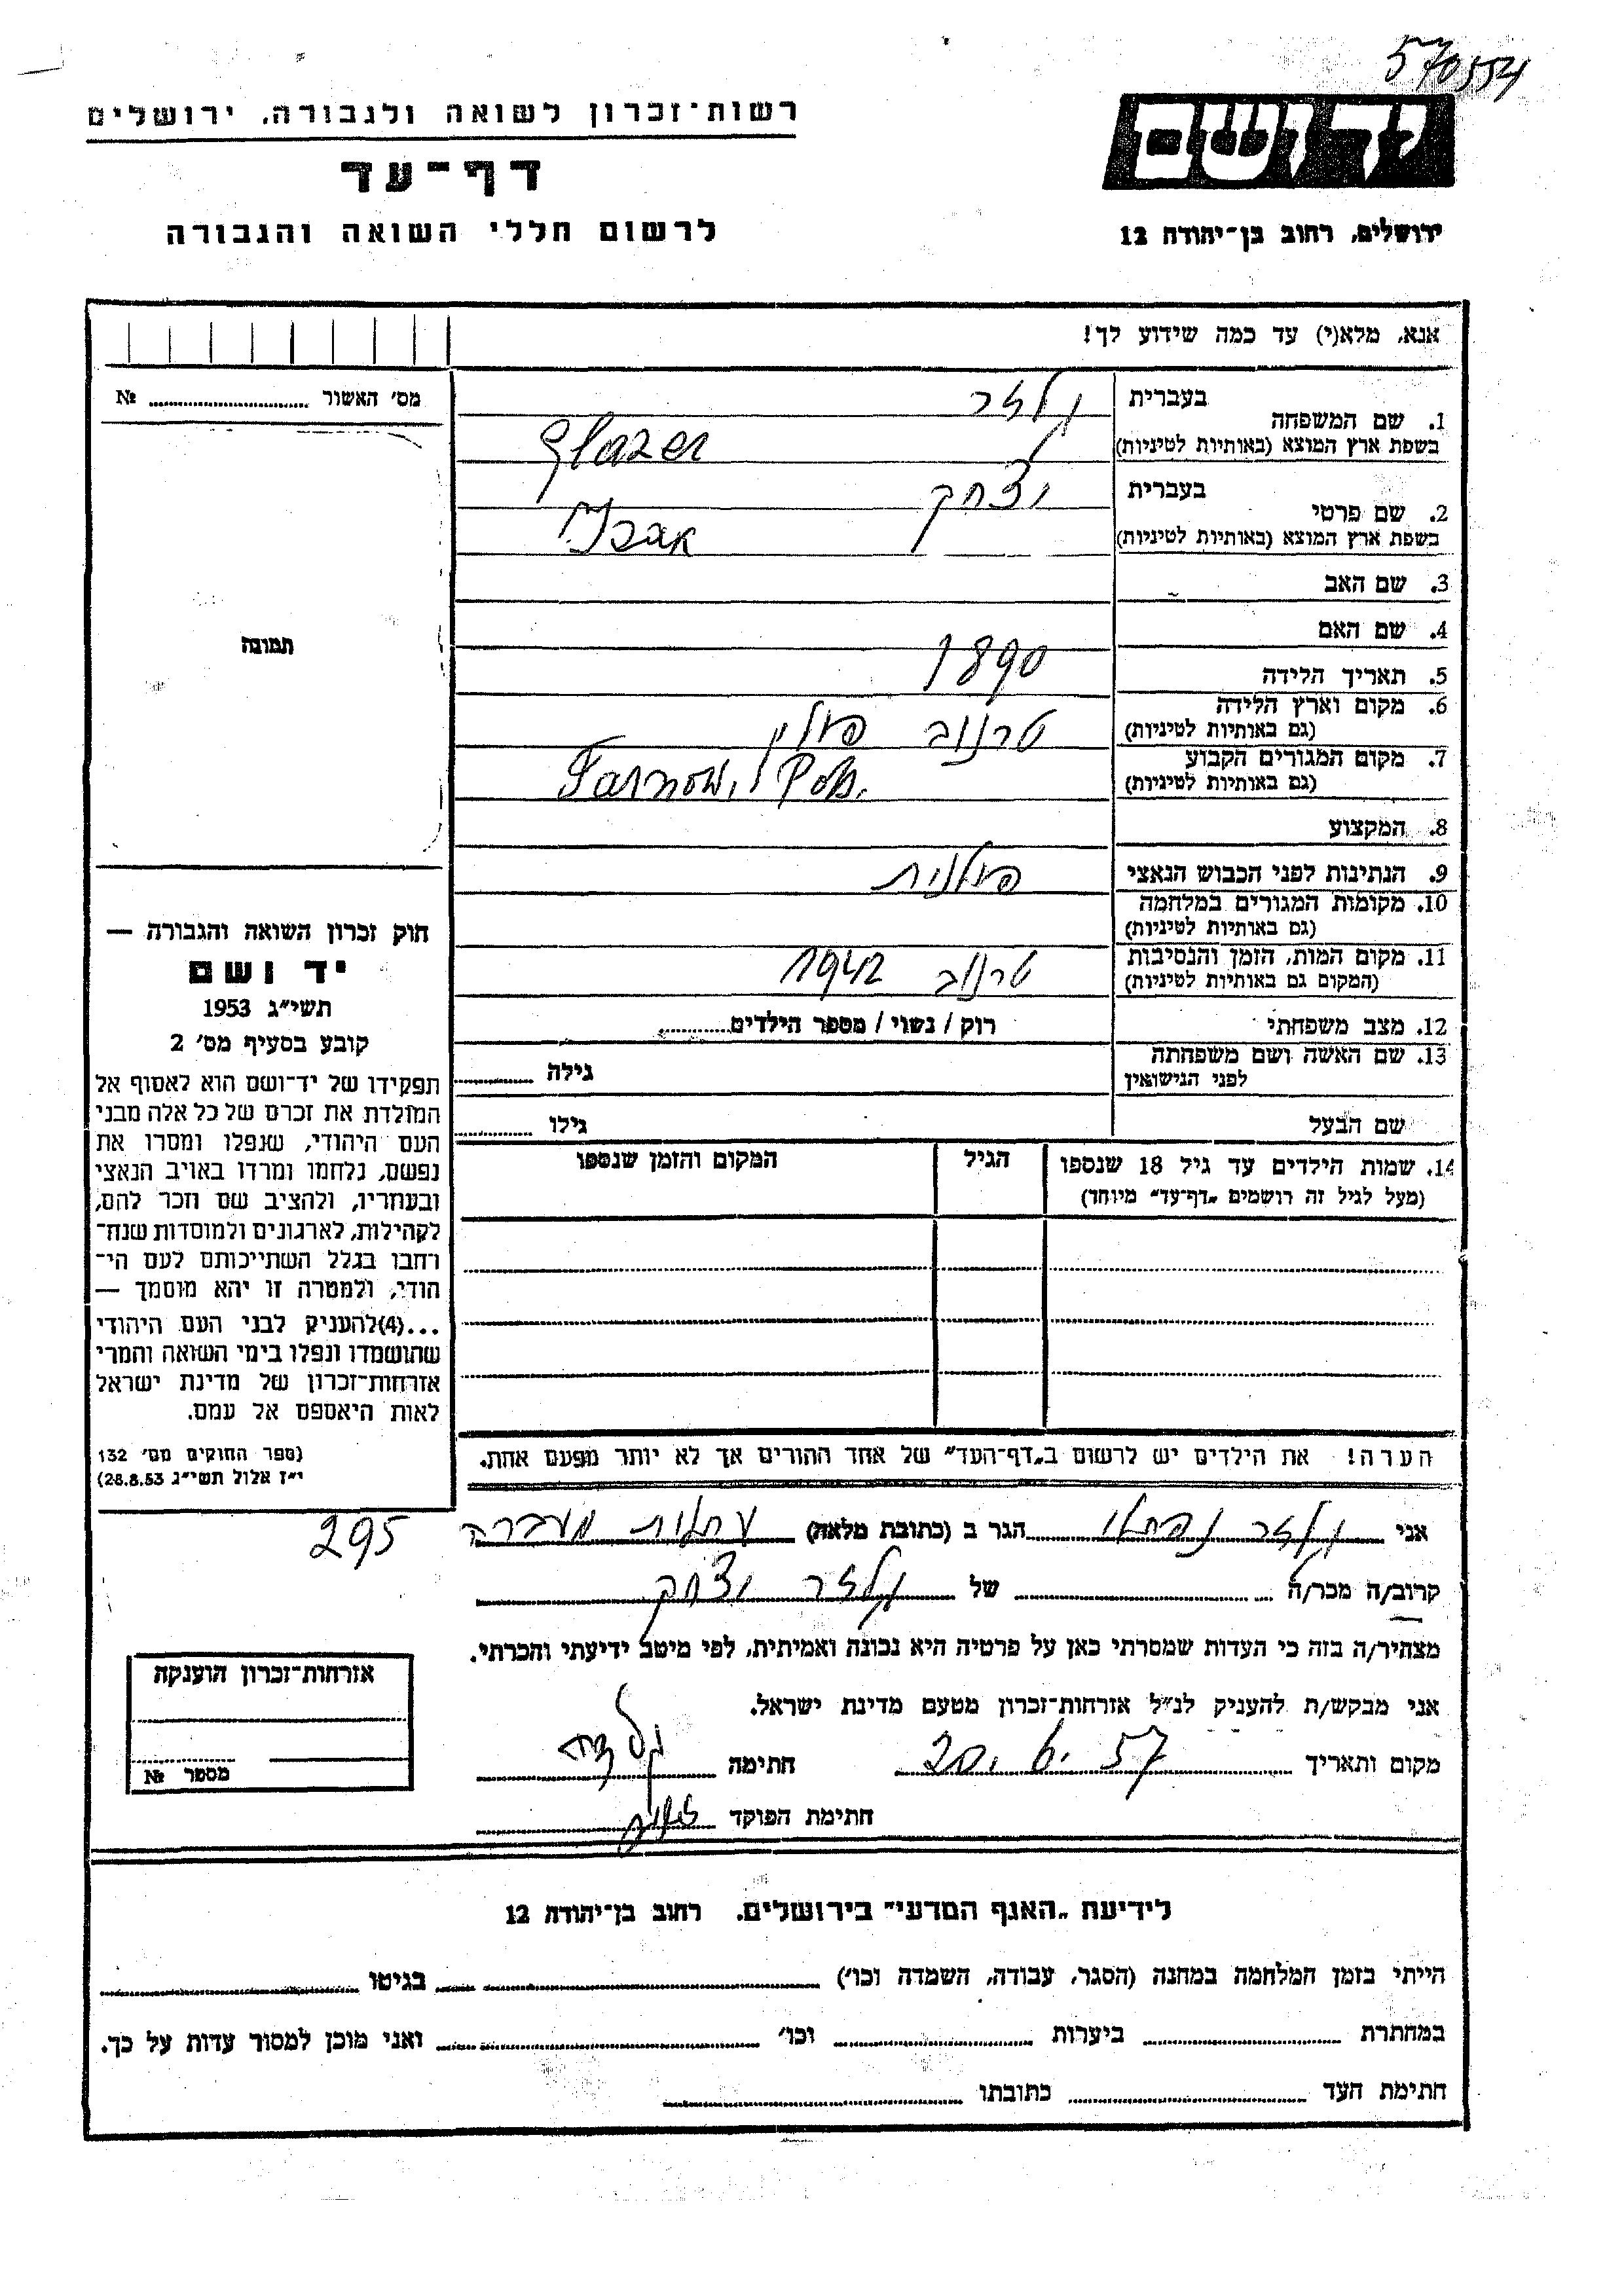 570554
רשות־זכרון לשואה ולגבורה, ירושלים
יד ושם
דף־עד
לרשום חללי השואה והגבורה
ירושלים, רחוב בן־יהודה 12
אנא, מלא(י) עד כמה שידוע לך!
מס׳ האשור № ........
1. שם המשפחה בעברית גלזר
בשפת ארץ המוצא (באותיות לטיניות) Glazer
2. שם פרטי בעברית יצחק
בשפת ארץ המוצא (באותיות לטיניות)
3. שם האב
4. שם האם
5. תאריך הלידה 1890
6. מקום וארץ הלידה טרנוב פולין
(גם באותיות לטיניות)
7. מקום המגורים הקבוע Tarnow, Pol.
(גם באותיות לטיניות)
8. המקצוע
9. הנתינות לפני הכבוש הנאצי פולנית
10. מקומות המגורים במלחמה
(גם באותיות לטיניות)
11. מקום המות, הזמן והנסיבות טרנוב 1942
(המקום גם באותיות לטיניות)
12. מצב משפחתי רוק / נשוי / מספר הילדים........
13. שם האשה ושם משפחתה גילה ........
לפני הנישואין
שם הבעל גילו ........
14. שמות הילדים עד גיל 18 שנספו הגיל המקום והזמן שנספו
(מעל לגיל זה רושמים „דף־עד״ מיוחד)
הערה! את הילדים יש לרשום ב„דף־העד״ של אחד ההורים אך לא יותר מפעם אחת.
תמונה
חוק זכרון השואה והגבורה —
יד ושם
תשי״ג 1953
קובע בסעיף מס׳ 2
תפקידו של יד־ושם הוא לאסוף אל
המולדת את זכרם של כל אלה מבני
העם היהודי, שנפלו ומסרו את
נפשם, נלחמו ומרדו באויב הנאצי
ובעוזריו, ולהציב שם וזכר להם,
לקהילות, לארגונים ולמוסדות שנח־
רבו בגלל השתייכותם לעם הי־
הודי, ולמטרה זו יהא מוסמך —
...(4)להעניק לבני העם היהודי
שהושמדו ונפלו בימי השואה והמרי
אזרחות־זכרון של מדינת ישראל
לאות היאספם אל עמם.
(ספר החוקים מס׳ 132
י״ז אלול תשי״ג 28.8.53)
אני גלזר נפתלי הגר ב (כתובת מלאה) עתלית מעברה 295
קרוב/ה מכר/ה ........ של גלזר יצחק
מצהיר/ה בזה כי העדות שמסרתי כאן על פרטיה היא נכונה ואמיתית, לפי מיטב ידיעתי והכרתי.
אני מבקש/ת להעניק לנ״ל אזרחות־זכרון מטעם מדינת ישראל.
מקום ותאריך 20. 6. 57 חתימה
חתימת הפוקד
אזרחות־זכרון הוענקה
מספר №
לידיעת „האגף המדעי״ בירושלים, רחוב בן־יהודה 12
הייתי בזמן המלחמה במחנה (הסגר, עבודה, השמדה וכו׳) ........ בגיטו ........
במחתרת ........ ביערות ........ וכו׳ ........ ואני מוכן למסור עדות על כך.
חתימת העד ........ כתובתו ........